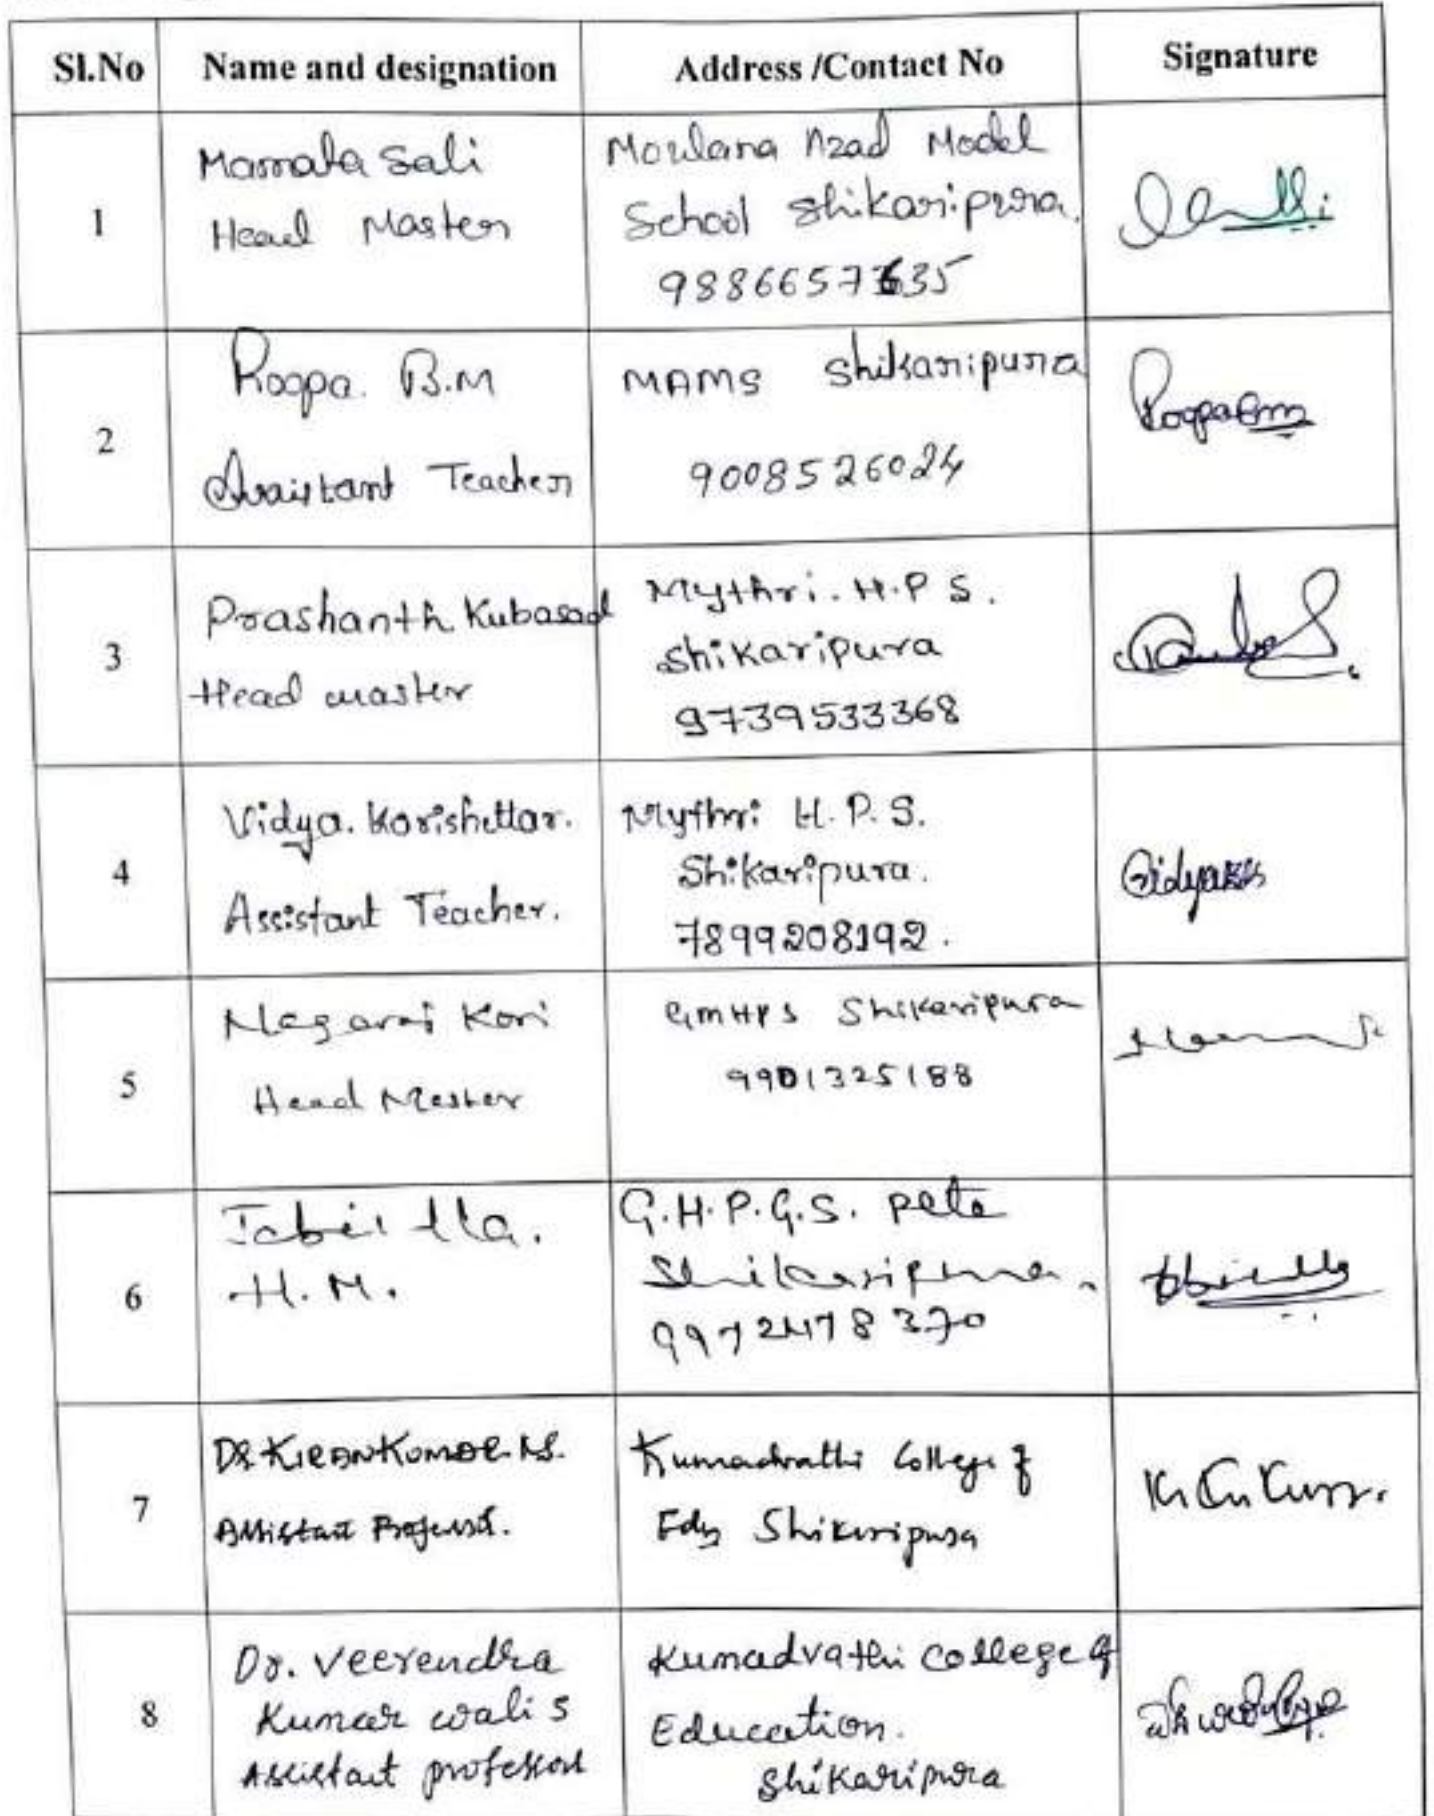 Sl.No Name and designation Address /Contact No Signature
1
Mamata Sali
Head Master
Moulana Azad Model
School Shikaripura.
9886657635
2
Roopa. B.M
Assistant Teacher
MAMS Shikaripura
9008526024
Roopa
3
Prashanth Kubasad
Head master
Mythri. H.P S.
Shikaripura
9739533368
4
Vidya. Korishettar.
Assistant Teacher.
Mythri H.P.S.
Shikaripura.
7899208192.
Vidya
5
Nagaraj Kori
Head Master
GMHPS Shikaripura
9901325188
6
H.M.
G.H.P.G.S. pete
Shikaripura.
9972478370
7
Dr KIRAN KUMAR
Assistant Professor.
Kumadvathi College of
Edn Shikaripura
8
Dr. Veerendra
Kumar Wali S
Assistant professor
Kumadvathi College of
Education.
Shikaripura